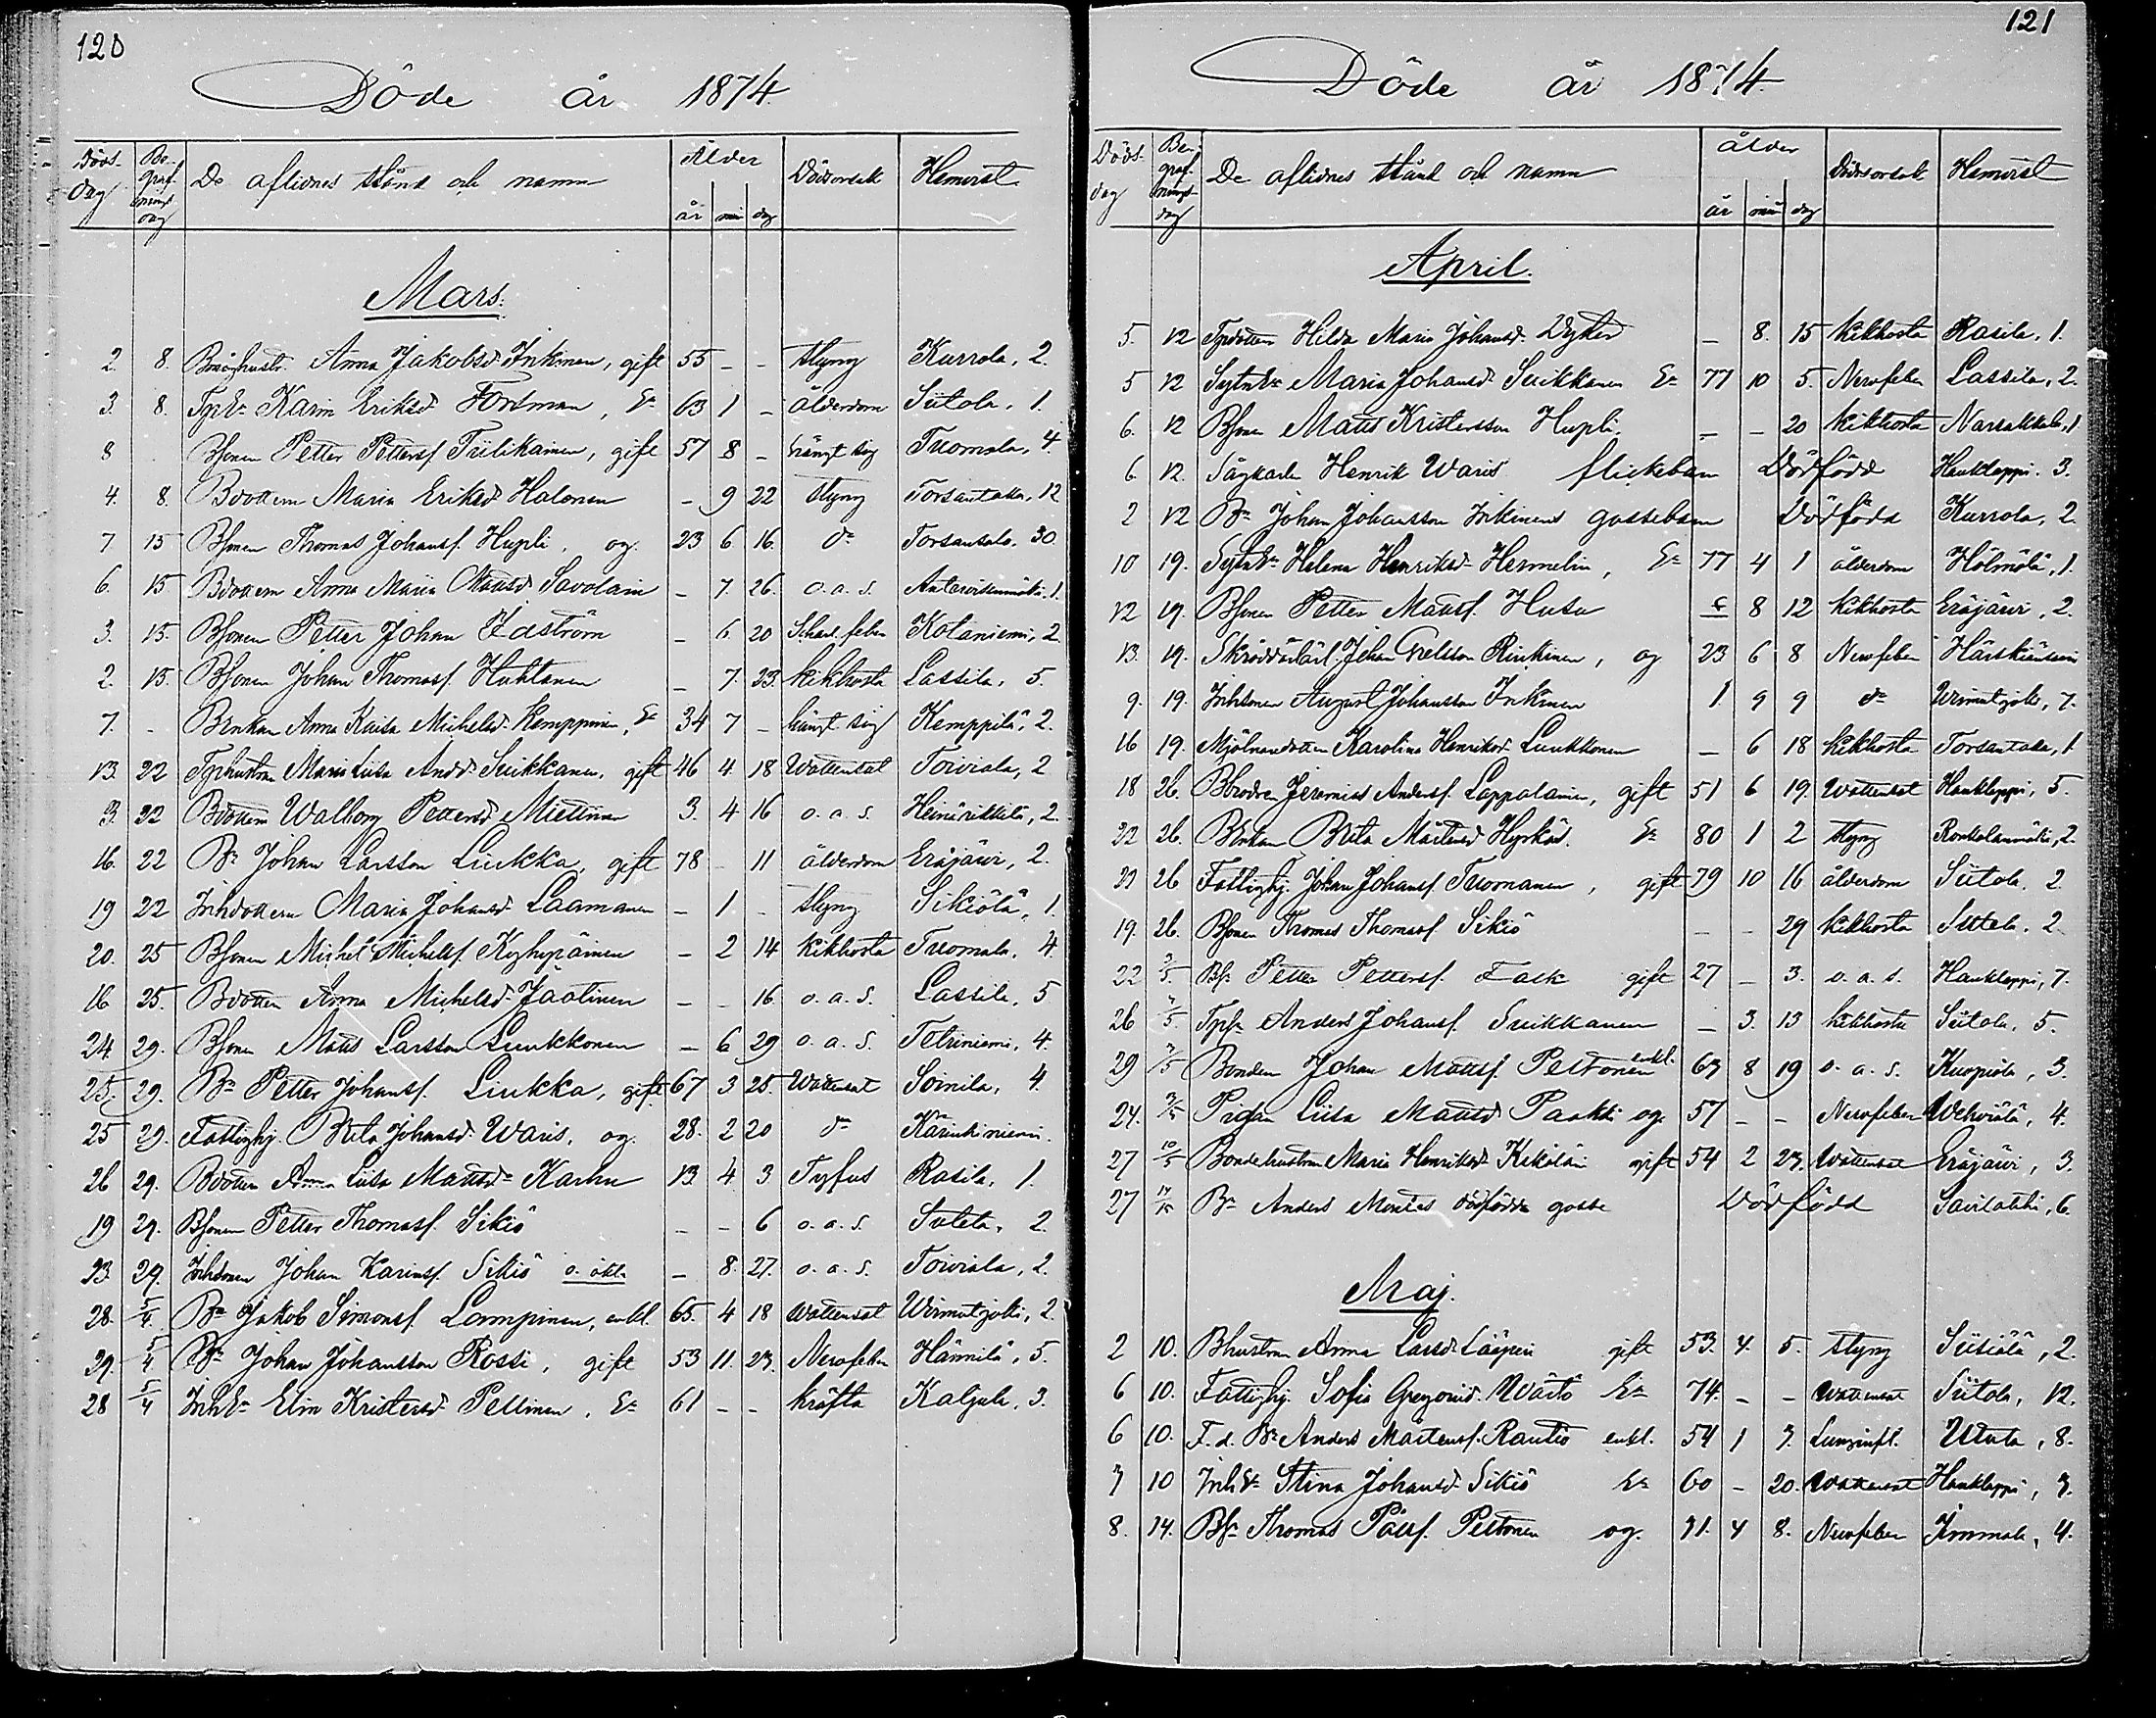 120
Döde år 1874.
Döds-dag Be-graf-nings-dag De aflidnes stånd och namn Ålder år mån dag Dödsorsak Hemvist
Mars.
2. 8. Anna Jakobsd. Inkinen, gift 55 - - styng Kurrola, 2.
3. 8. Karin Eriksd. Fortman, Ea 63 1 - ålderdom Siitola, 1.
8 Bsonen Petter Pettersf. Tiilikainen, gift 57 8 - hängt sig Tuomala, 4.
4. 8. Bdottern Maria Eriksd. Halonen - 9 22 styng Torsantaka, 12
7 15 Bsonen Thomas Johansf. Hupli, og. 23 6 16. do Torsansalo. 30.
6. 15. Bdottern Anna Maria Mattsd. Savolain - 7. 26. o. a. s. 1.
3. 15. Bsonen Petter Johan Idström - 6 20 Scharl. feber Kolaniemi, 2.
2. 15. Bsonen Johan Thomasf. Huhtanen - 7. 23. kikhosta Lassila, 5.
7. - Anna Kaisa Michelsd. Kemppinen, Ea 34 7 - hängt sig Kemppilä, 2.
13. 22 Tphustrun Maria Liisa Andsd. Suikkanen, gift 46 4 18 Wattensot Toiviala, 2
3. 22 Bdottern Walborg Pettersd. Miettinen 3. 4 16 o. a. s. Heinärikkilä, 2.
16. 22 Bn Johan Larsson Liukka, gift 78 - 11 ålderdom Eräjärvi, 2.
19 22 Inhdottern Maria Johansd. Laamanen - 1 - styng Sikiölä, 1.
20. 25 Bsonen Michel Michelsf. Kyhypäinen - 2 14 kikhosta Tuomala, 4.
16 25. Bdottern Anna Michelsd. Jäätinen - - 16. o. a. s. Lassila, 5
24. 29. Bsonen Matts Larsson Luukkonen - 6 29 o. a. s. Tetriniemi, 4.
25. 29. Bn Petter Johansf. Liukka, gift 67 3 25. Wattensot Soinila, 4.
25 29. Fattighj. Brita Johansd. Waris, og. 28. 2 20 do Kärinkiniemi.
26 29. Bdottern Anna Liisa Mattsd. Karhu 13. 4. 3. Tyfus Rasila, 1.
19 29. Bsonen Petter Thomasf. Sikiö - - 6 o. a. s. 2.
23. 29. Inhsonen Johan Karinsf. Sikiö o. äkta - 8. 27. o. a. s. Toiviala, 2.
28. 5/4. Bn Jakob Simonsf. Lampinen, enkl. 65. 4 18 Wattensot Wirmutjoki, 2.
29. 5/4 Bn Johan Johansson Rossi, gift 53 11. 23. Nervfeber Hännilä, 5.
28 5/4 Inh Ea Elin Kristersd. Pellinen, Ea 61 - - kräfta Kaljula, 3.
121
Döde år 1874.
Döds-dag Be-graf-nings-dag De aflidnes stånd och namn ålder år mån dag Dödsorsak Hemvist
April.
5. 12 Tpdottern Hilda Maria Johansd. Dyster - 8. 15 kikhosta Rasila, 1.
5 12 Maria Johansd. Suikkanen Ea 77 10 5. Nervfeber Lassila, 2.
6. 12 Bsonen Matts Kristersson Hupli - - 20 kikhosta Narsakkala, 1
6. 12. Sågkarlen Henrik Waris flickebarn Dödfödd Haukleppi. 3.
2 12 Bn Johan Johansson Inkinens gossebarn Dödfödd Kurrola, 2.
10 19. Helena Henriksd. Hermelin, Ea 77 4 1 ålderdom Hölmölä, 1.
12 19. Bsonen Petter Mattsf. Husu 8 12 kikhosta Eräjärvi, 2.
13. 19. Johan Rinkinen, og 23 6 8 Nervfeber
9. 19. Inhsonen August Johansson Inkinen 1. 9 9 do Wirmutjoki, 7.
16 19. Mjölnaredottern Karolina Henriksd. Luukkonen - 6 18 kikhosta Torsantaka, 1.
18 26. Bbrodren Jeremias Andersf. Lappalainen, gift 51 6 19. Wattensot Haukleppi, 5.
22 26. Brita Mårtensd. Hyrkäs. Ea 80 1 2 styng 2.
22 26 Fattighj. Johan Johansf. Tuomanen, gift 79 10 16 ålderdom Siitola, 2
19. 26. Bsonen Thomas Thomasf. Sikiö - - 29 kikhosta Siitola, 2.
22 3/5. Bf. Petter Pettersf. Fack gift 27 - 3. o. a. s. Haukleppi, 7.
26 3/5. Anders Johansf. Suikkanen - 3. 13 kikhosta Siitola, 5.
29 3/5 Bonden Johan Mattsf. Peltonen enkl. 63 8 19 o. a. s. Kuopiola, 3.
24. 3/5 Pigan Liisa Mattsd. Paakki og. 57 - - Nervfeber Wehviälä, 4.
27 10/5 Bondehustrun Maria Henriksd. Kekäläin gift 54 2 23. Wattensot Eräjärvi, 3.
27 Bn Anders Montas dödfödda gosse Dödfödd 6.
Maj.
2 10. Bhustrun Anna Larsd. Lääperi gift 53. 4. 5. styng Siisiälä, 2.
6 10. Fattighj. Sofia Gregorisd. Wärtö Ea 74. - - Wattensot Siitola, 12.
6 10. F.d. Bn Anders Mårtensf. Rautio enkl. 54 1 3. Lunginfl. Utula, 8.
7 10 Inh Ea Stina Johansd. Sikiö Ea 60 - 20. Wattensot Haukleppi, 3.
8. 14. Bf. Thomas Pålsf. Peltonen og. 4 8. Nervfeber Immala, 4.